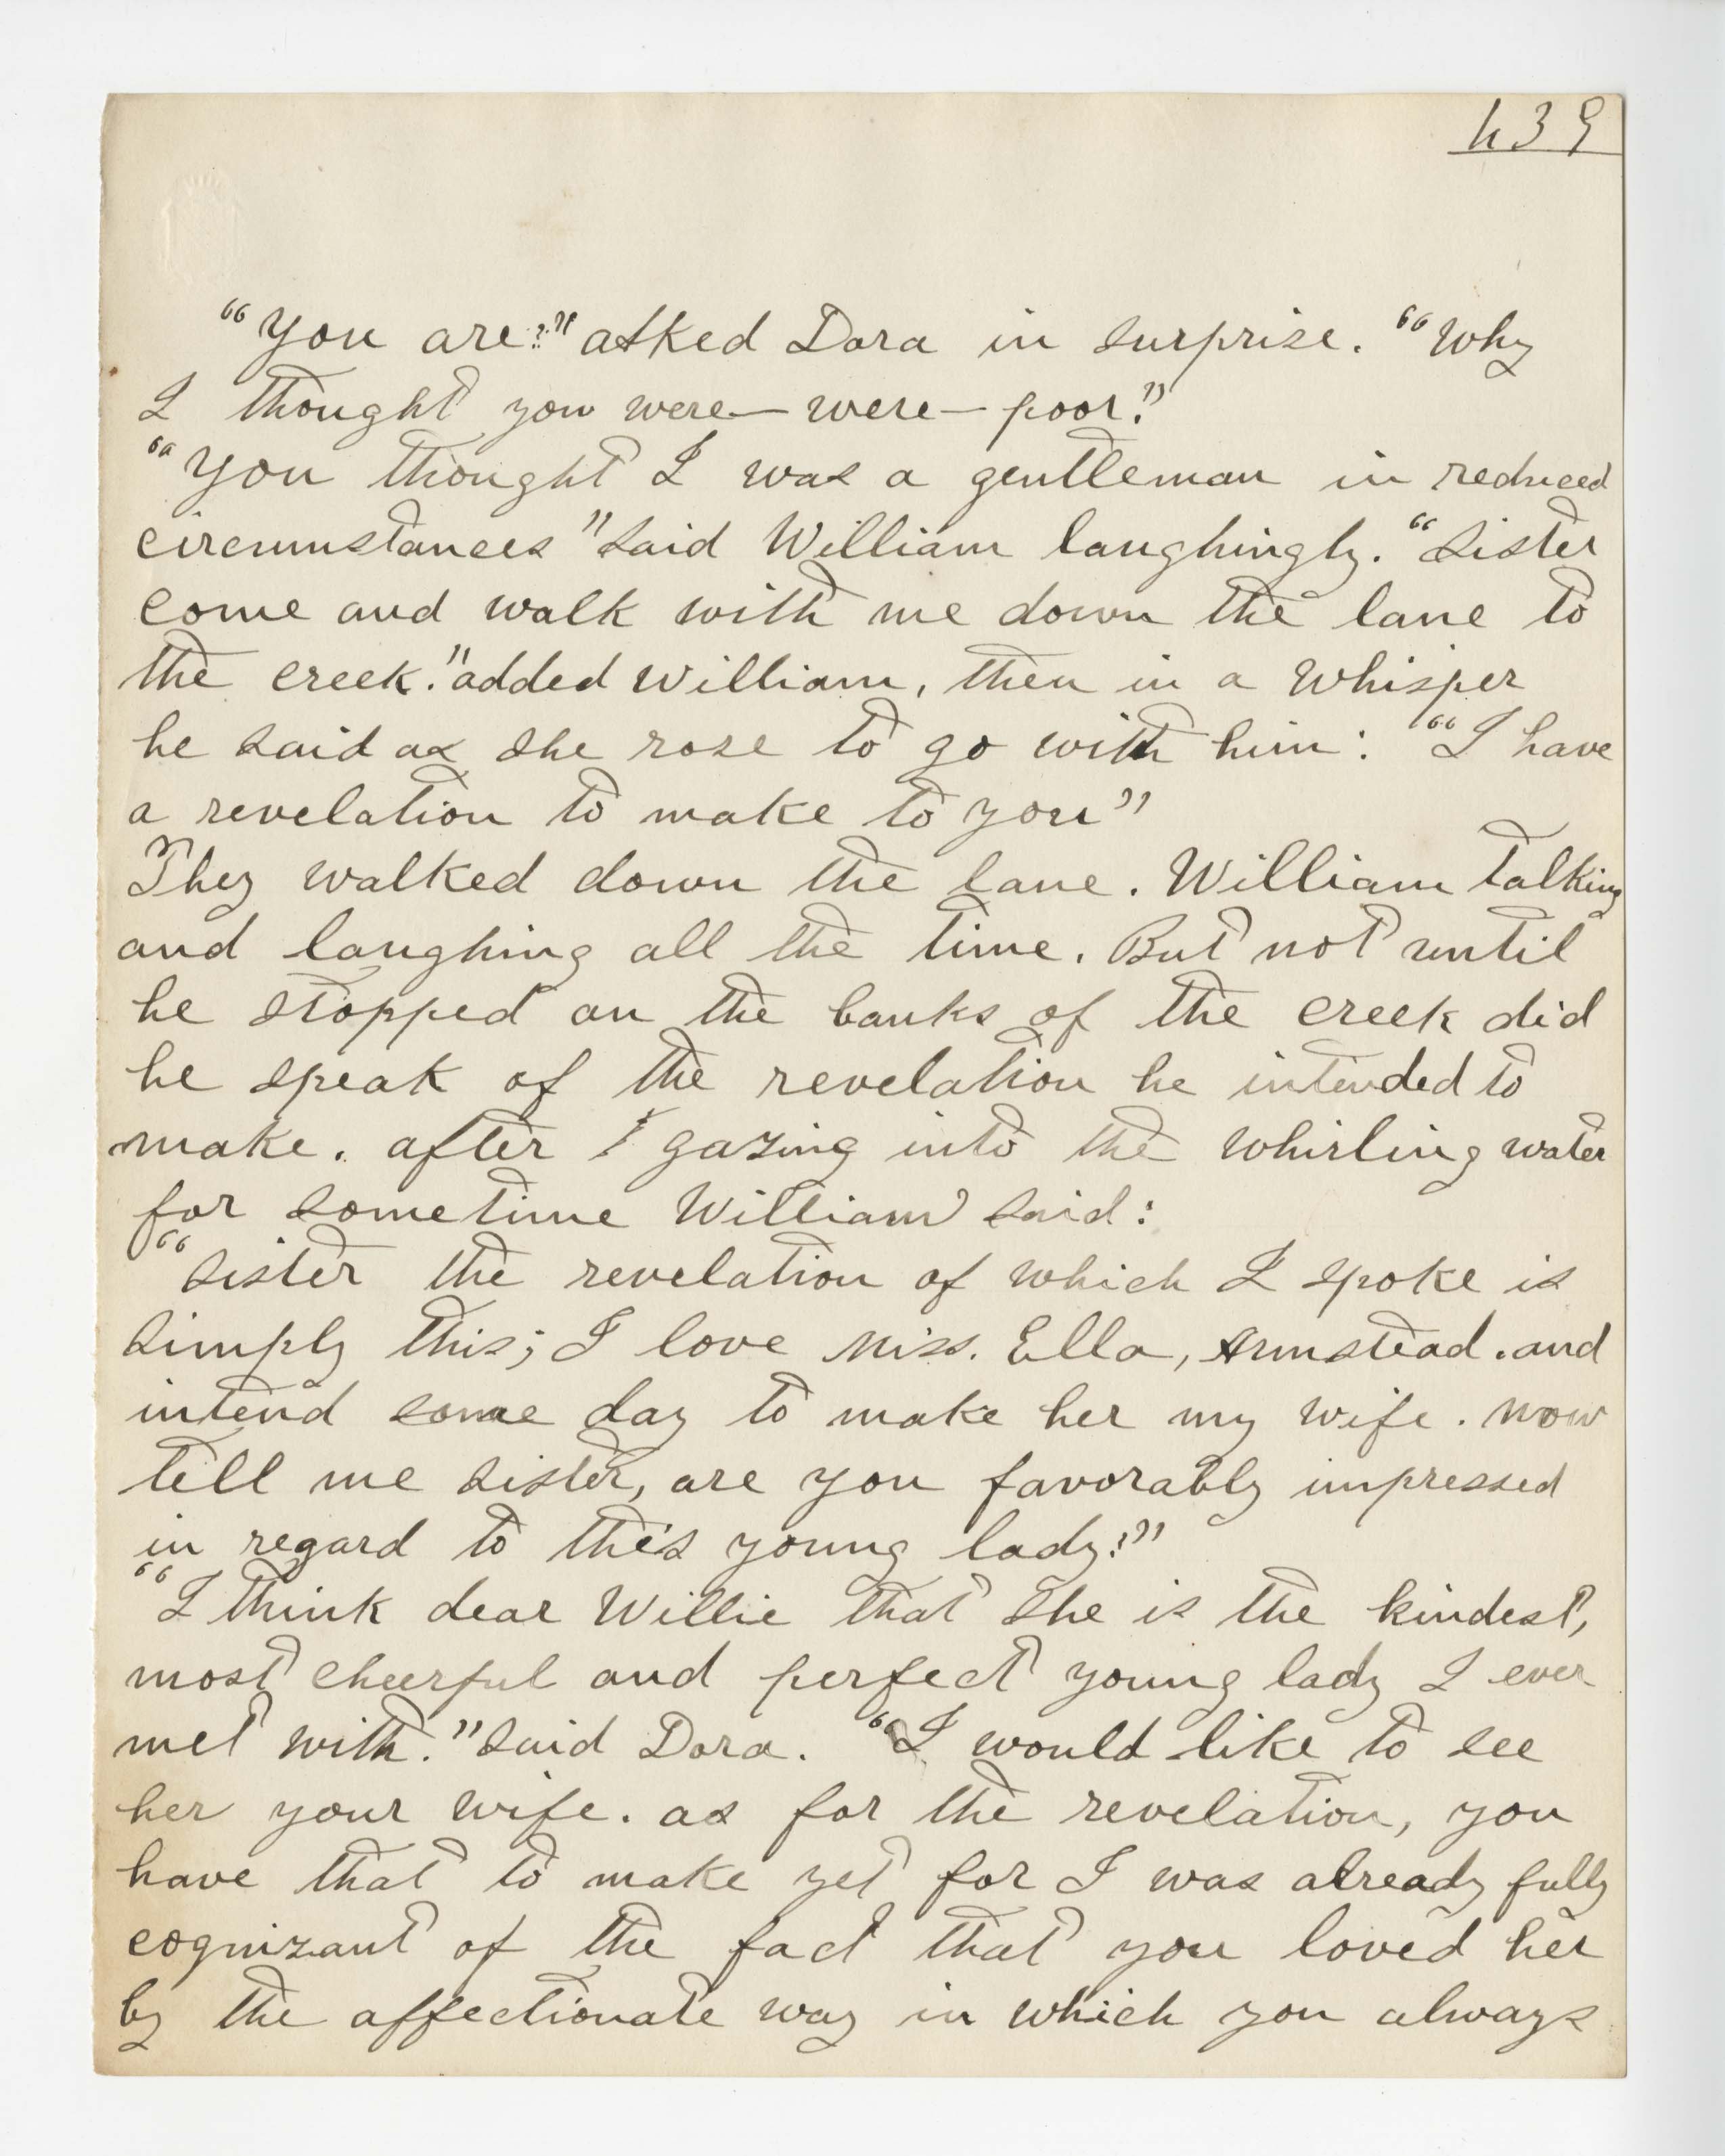 439
"You are?" asked Dora in surprise. "Why
I thought you were— were— poor."
"You thought I was a gentleman in reduced
circumstances" said William laughingly. "Sister
come and walk with me down the lane to
the creek." added William, then in a whisper
he said as she rose to go with him: "I have
a revelation to make to you"
They walked down the lane. William talking
and laughing all the time. But not until
he stopped on the banks of the creek did
he speak of the revelation he intended to
make. after gazing into the whirling water
for sometime William said:
"Sister the revelation of which I spoke is
simply this; I love Miss. Ella, Armstead. and
intend some day to make her my wife. Now
tell me sister, are you favorably impressed
in regard to this young lady?"
"I think dear Willie that she is the kindest,
most cheerful and perfect young lady I ever
met with." said Dora. "I would like to see
her your wife. as for the revelation, you
have that to make yet for I was already fully
cognizant of the fact that you loved her
by the affectionate way in which you always